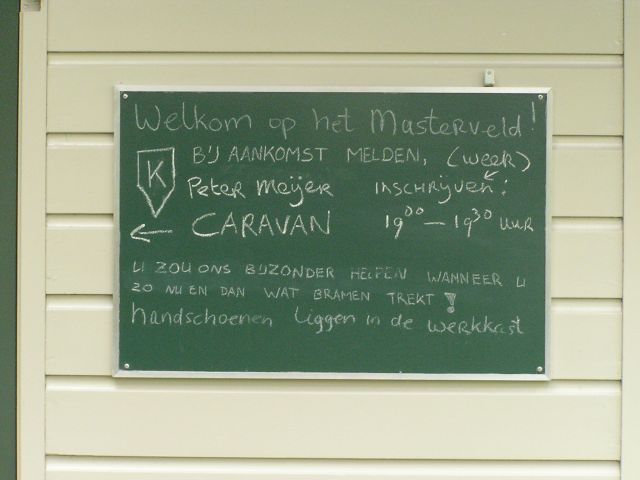 Welkom op het Masterveld!
K BIJ AANKOMST MELDEN, (week)
Peter Meijer inschrijven:
← CARAVAN 19⁰⁰ — 19³⁰ uur
U ZOU ONS BIJZONDER HELPEN WANNEER U
ZO NU EN DAN WAT BRAMEN TREKT !
handschoenen liggen in de werkkast